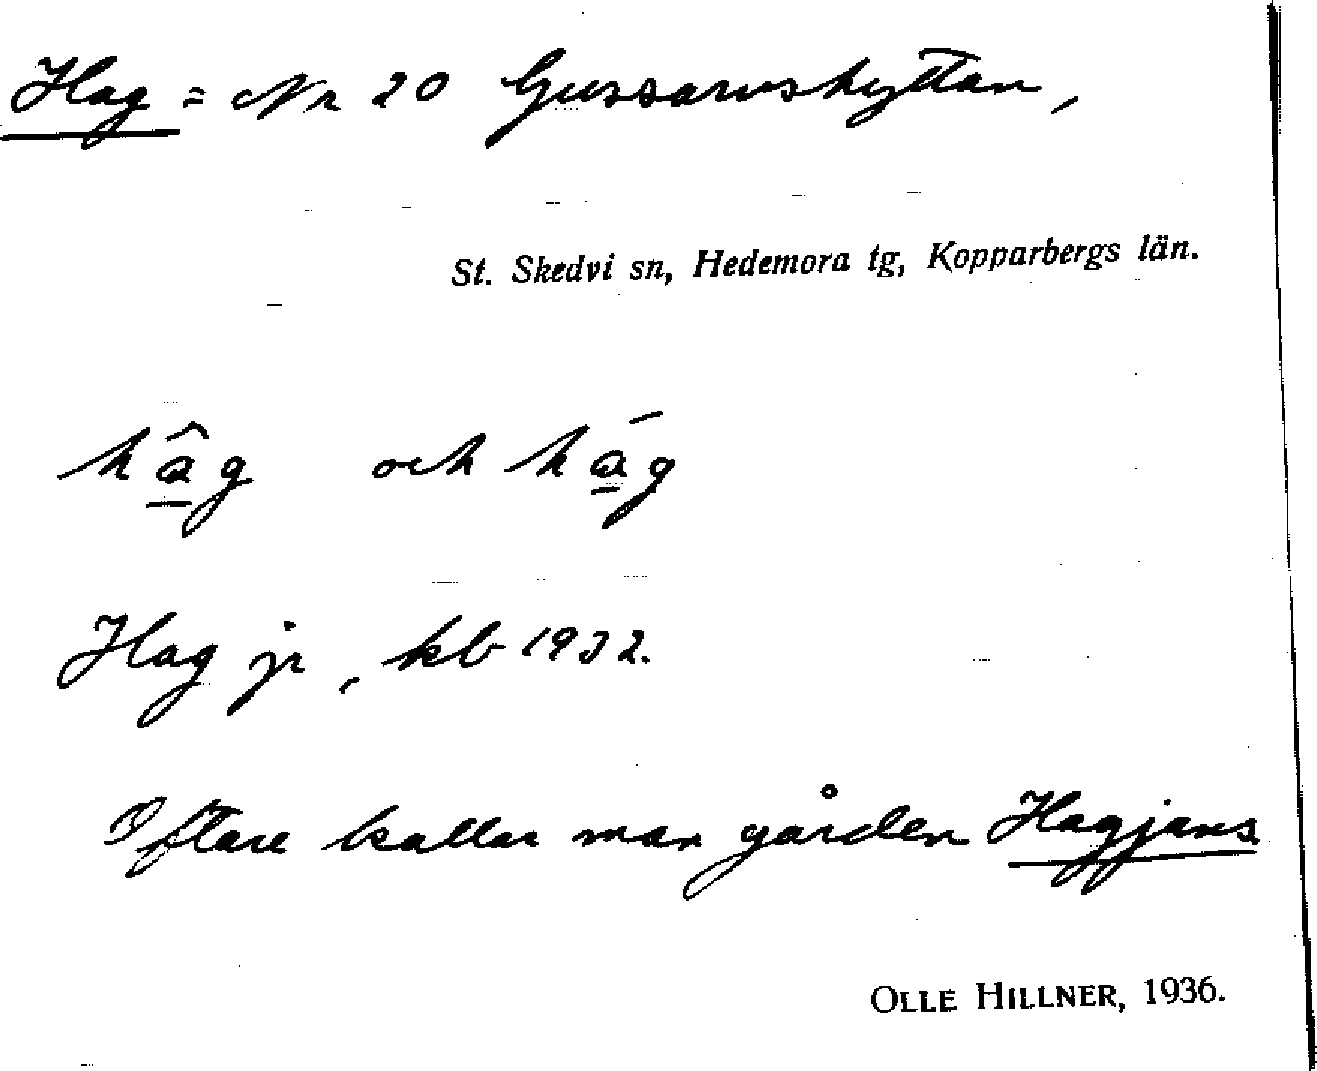 Hag = Nr 20 Gussarvshyttan,
St. Skedvi sn, Hedemora tg, Kopparbergs län.
hâ̱g och há̱g
Hag jr, kb 1932.
Oftare kallar man gården Hagjans
OLLE HILLNER, 1936.